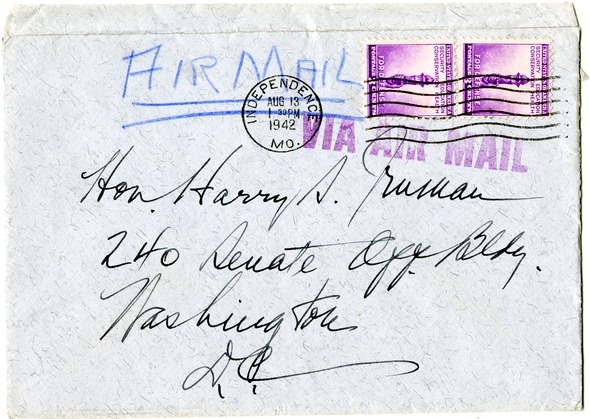 AIR MAIL
INDEPENDENCE
AUG 13
1 30 PM
1942
MO.
FOR DEFENSE
FOR DEFENSE
VIA AIR MAIL
Hon. Harry S. Truman
240 Senate Off. Bldg.
Washington
D.C.